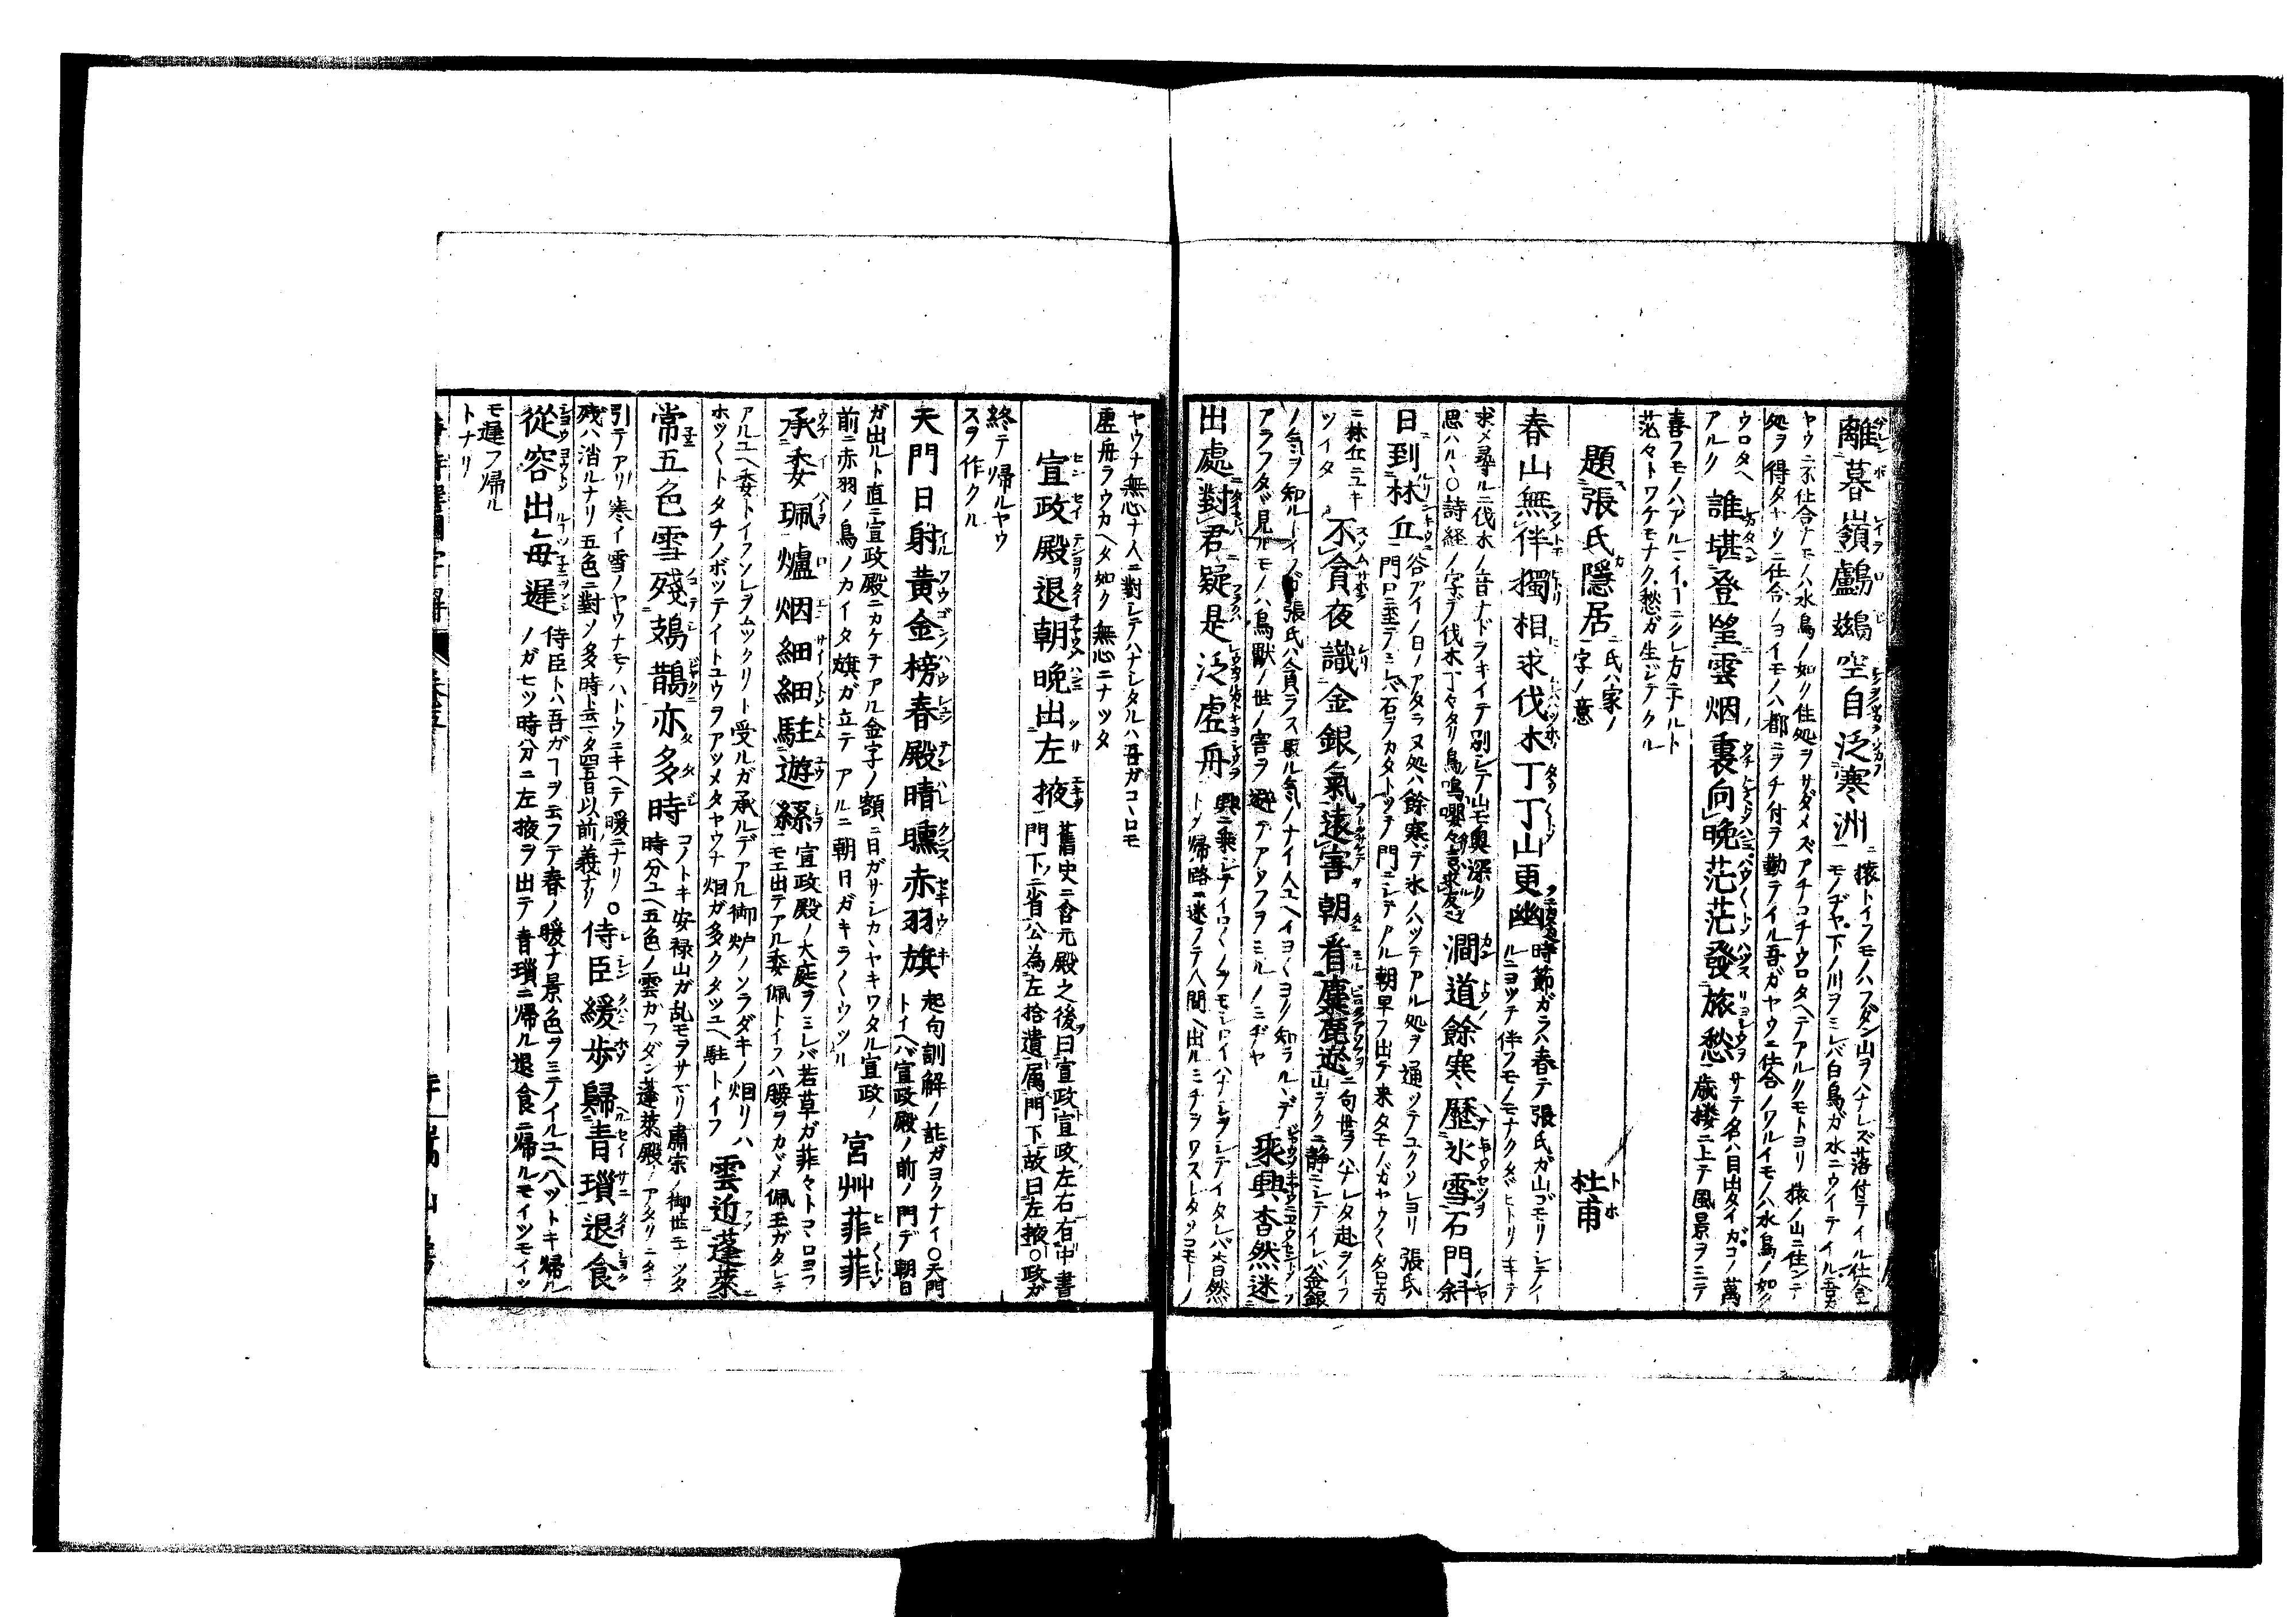 離暮嶺鸕鷀空自泛寒洲
猿トイフモノハフダン山ヲハナレズ落付テイル仕合
モノヂヤ下ノ川ヲミレバ白鳥ガ水ニウイテイル吾ガ
ヤウニ不仕合ナモノハ水鳥ノ如ク住処ヲサダメズアチコチウロタヘテアルクモトヨリ猿ノ山ニ住ンデ
処ヲ得タヤウニ仕合ノヨイモノハ都ニヲチ付ヲ勤テイル吾ガヤウニ仕合ノワルイモノハ水鳥ノ如ク
ウロタヘ
アルク
誰堪登望雲烟裏向晩茫茫發旅愁
サテ名ハ目出タイガコノ萬
歳楼ニ上テ風景ヲミテ
喜フモノハアルマイ
茫々トワケモナク愁ガ生ジテクル
題張氏隱居
氏ハ家ノ
字ノ意
杜甫
春山無伴獨相求伐木丁丁山更幽
時節ガラ春テ張氏ガ山ゴモリシテイ
ルニヨツテ伴フモノモナクタヾヒトリユキテ
求メ尋ルニ伐木ノ音ナドヲキイテ別シテ山モ奥深ク
思ハルヽ○詩経ノ字デ伐木丁々タリ鳥鳴嚶々
澗道餘寒歷氷雪石門斜
日到林丘
谷アイノ日ノアタラヌ処ハ餘寒デ氷ノハツテアル処ヲ通ツテユクソレヨリ張氏
門口ニ至テミレバ石ブカタトツチ門ニシテアル朝早フ出テ来タモノガヤウ〱夕日方
ニ林丘ニユキ
ツイタ
不貪夜識金銀氣遠害朝看麋鹿遊
二句世ヲハナレタ趣ヲイフ
山ラクニ静ニシテイレバ金銀
ノ氣ヲ知ルトイフガ張氏ハ貪ラス
アラフタヾ見ルモノハ鳥獸ノ世ノ害ヲ避テアソフヲミルノミヂヤ
乘興杳然迷
出處對君疑是泛虛舟
興ニ乘シテイロ〱ノヲモシロイハナシヲシテイタレバ杳然
トソ帰路ニ迷フテ人間ヘ出ルミチヲワスレタソコモトノ
ヤウナ無心ナ人ニ對シテハナシタルハ吾ガコヽロモ
虛舟ヲウカヘタ如ク無心ニナツタ
宣政殿退朝晩出左掖
舊史ニ含元殿之後曰宣政宣政左右有中書
門下ニ省公為左拾遺属門下故曰左掖○政ガ
終テ帰ルヤウ
スヲ作クル
天門日射黄金榜春殿晴曛赤羽旗
起句訓解ノ註ガヨクナイ○天門
トイヘバ宣政殿ノ前ノ門デ朝日
ガ出ルト直ニ宣政殿ニカケテアル金字ノ額ニ日ガサシカヽヤキワタル宣政ノ
前ニ赤羽ノ鳥ノカイタ旗ガ立テアルニ朝日ガキラ〱ウツル
宮艸菲菲
承委珮爐烟細細駐遊絲
宣政殿ノ大庭ヲミレバ若草ガ菲々トコヽロヨフ
モエ出テアル委佩トイフハ腰ヲカヾメ佩玉ガタレテ
アルユヘ委トイフソレヲムツクリト受ルガ承ルデアル御炉ノソラダキノ烟リハ
ホツ〱トタチノボツテイトユウヲアツメタヤウナ烟ガ多クタツユヘ駐トイフ
雲近蓬萊
常五色雪殘鳷鵲亦多時
コノトキ安禄山ガ乱モヲサマリ肅宗ノ御世ニナツタ
時分ユヘ五色ノ雲ガフダン蓬萊殿ノアタリニタナ
引テアリ寒イ雪ノヤウナモノハトウニキヘテ暖ニナリ
残ハ消ルナリ五色ニ對ソ多時ト云タ四百以前義ナリ
○侍臣緩歩歸青瑣退食
從容出毎遲
侍臣トハ吾ガコヲ云フテ春ノ暖ナ景色ヲミテイルユヘハツトキ帰ル
ノガセツ時分ニ左掖ヲ出テ青瑣ニ帰ル退食ニ帰ルモイツモイツ
モ遲フ帰ル
トナリ